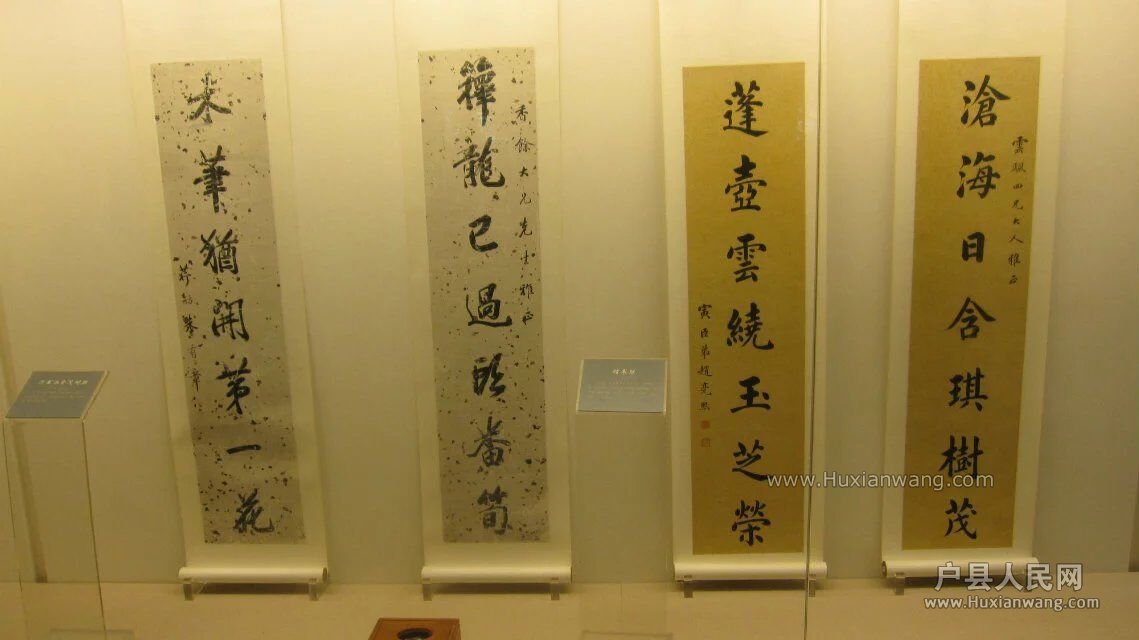 滄海日含琪樹茂
雲颿四兄大人雅正
蓬壺雲繞玉芝榮
寅臣弟趙亮熙
籜龍已過頭番筍
香餘大兄先生雅正
木筆猶開第一花
www.Huxianwang.com
户县人民网
www.Huxianwang.com